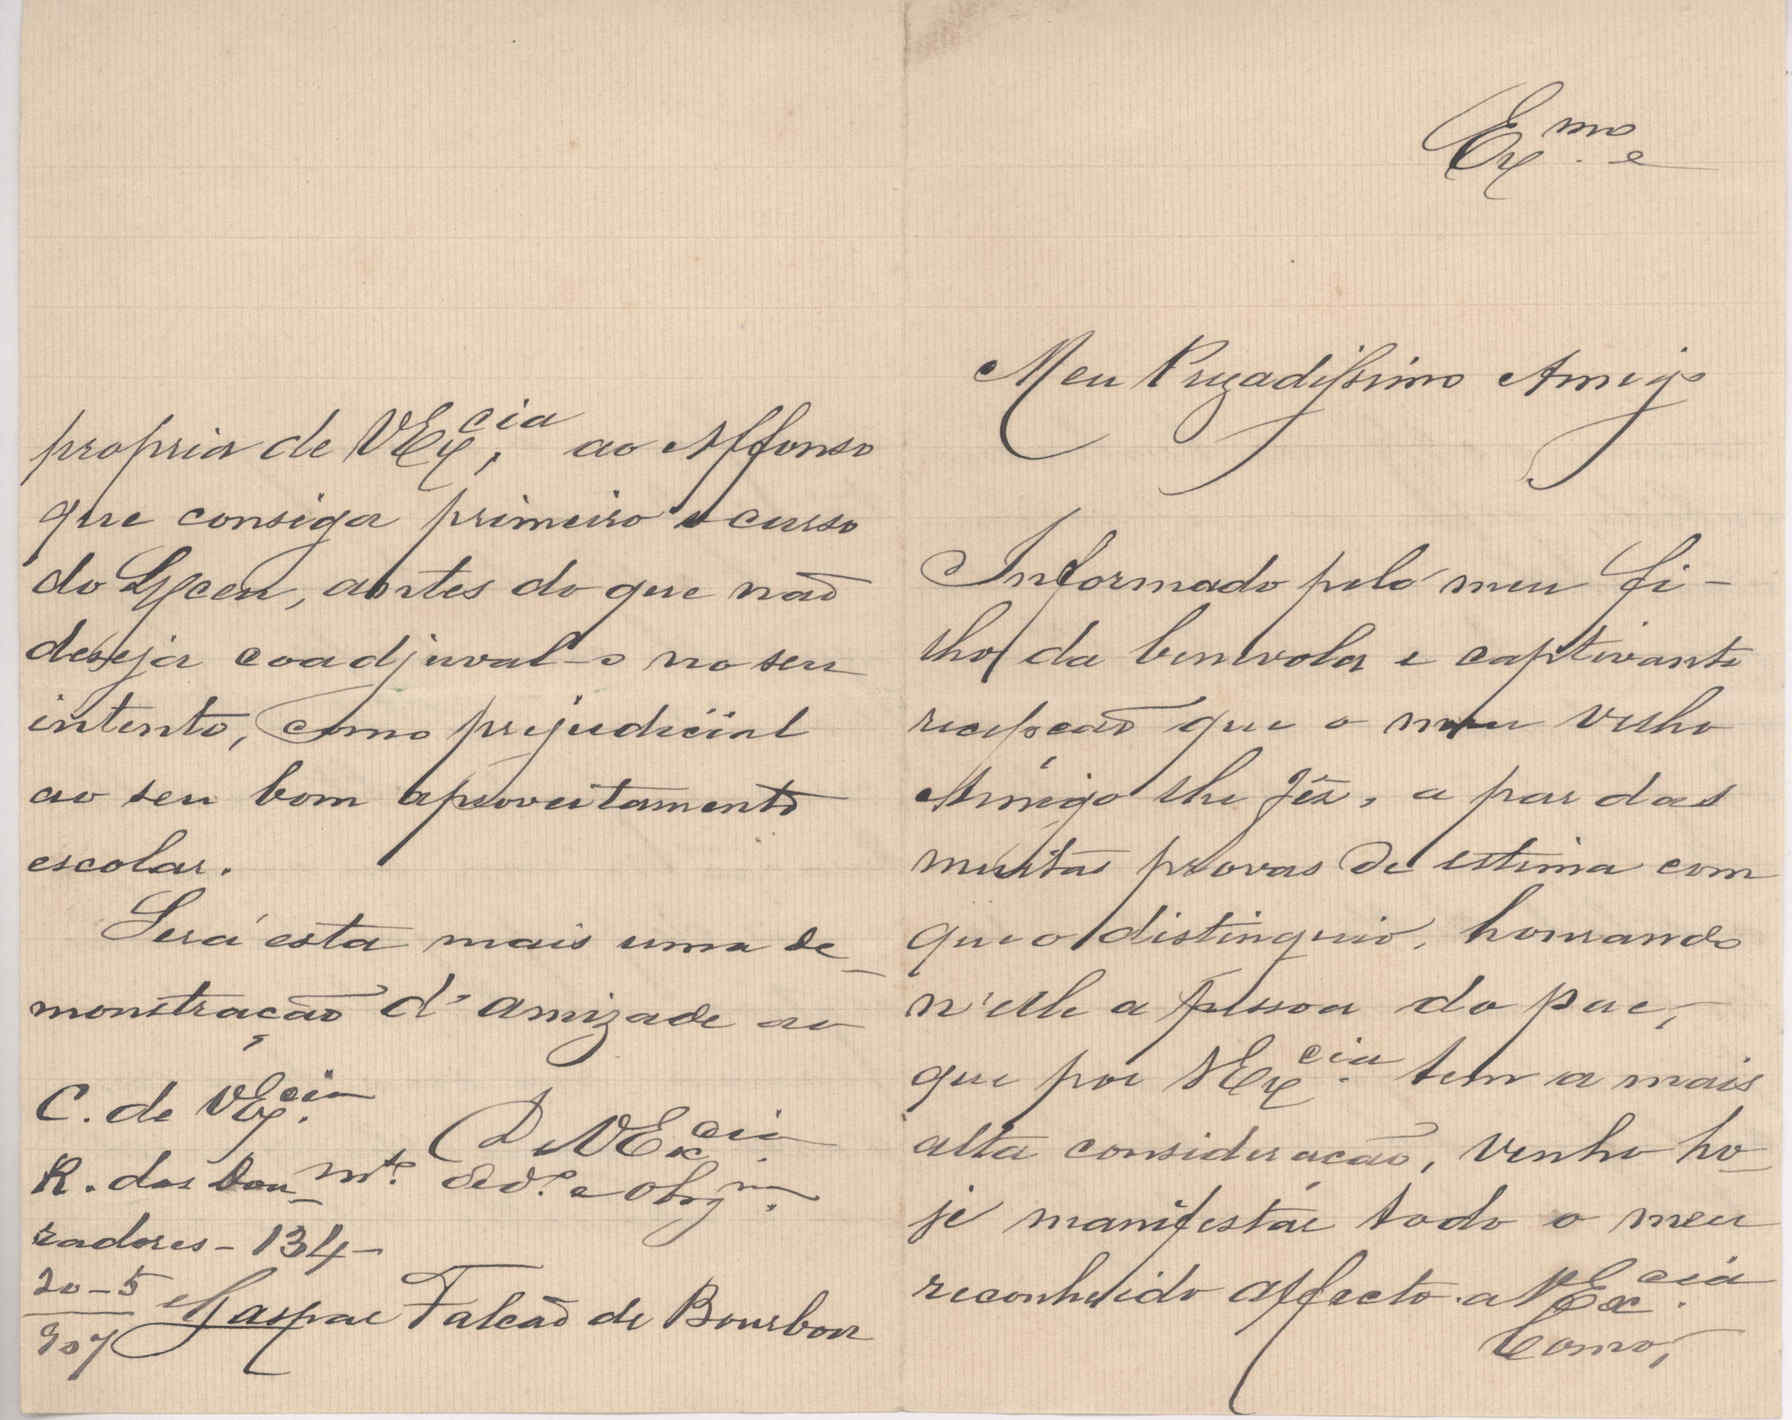 Ex.mo e
Meu Prezadissimo Amigo
Informado pelo meu fi-
lho da benevola e captivante
recepção que o meu velho
Amigo lhe fez, a par das
muitas provas de estima com
que o distinguio, honrando
n'elle a pessoa do pae,
que por VEx.cia tem a mais
alta consideração, venho ho-
je manifestar todo o meu
reconhecido affecto a VEx.cia
Como,
propria de VEx.cia, ao Affonso
que consiga primeiro o curso
do Lyceu, antes do que não
deseja coadjuval-o no seu
intento, como prejudicial
ao seu bom aproveitamento
escolar.
Será esta mais uma de-
monstração d'amizade ao
De VEx.cia
m.to Ded.o e Obrg.mo
Gaspar Falcão de Bourbon
C. de VEx.cia
R. dos Dou-
radores - 134 -
20-5
907